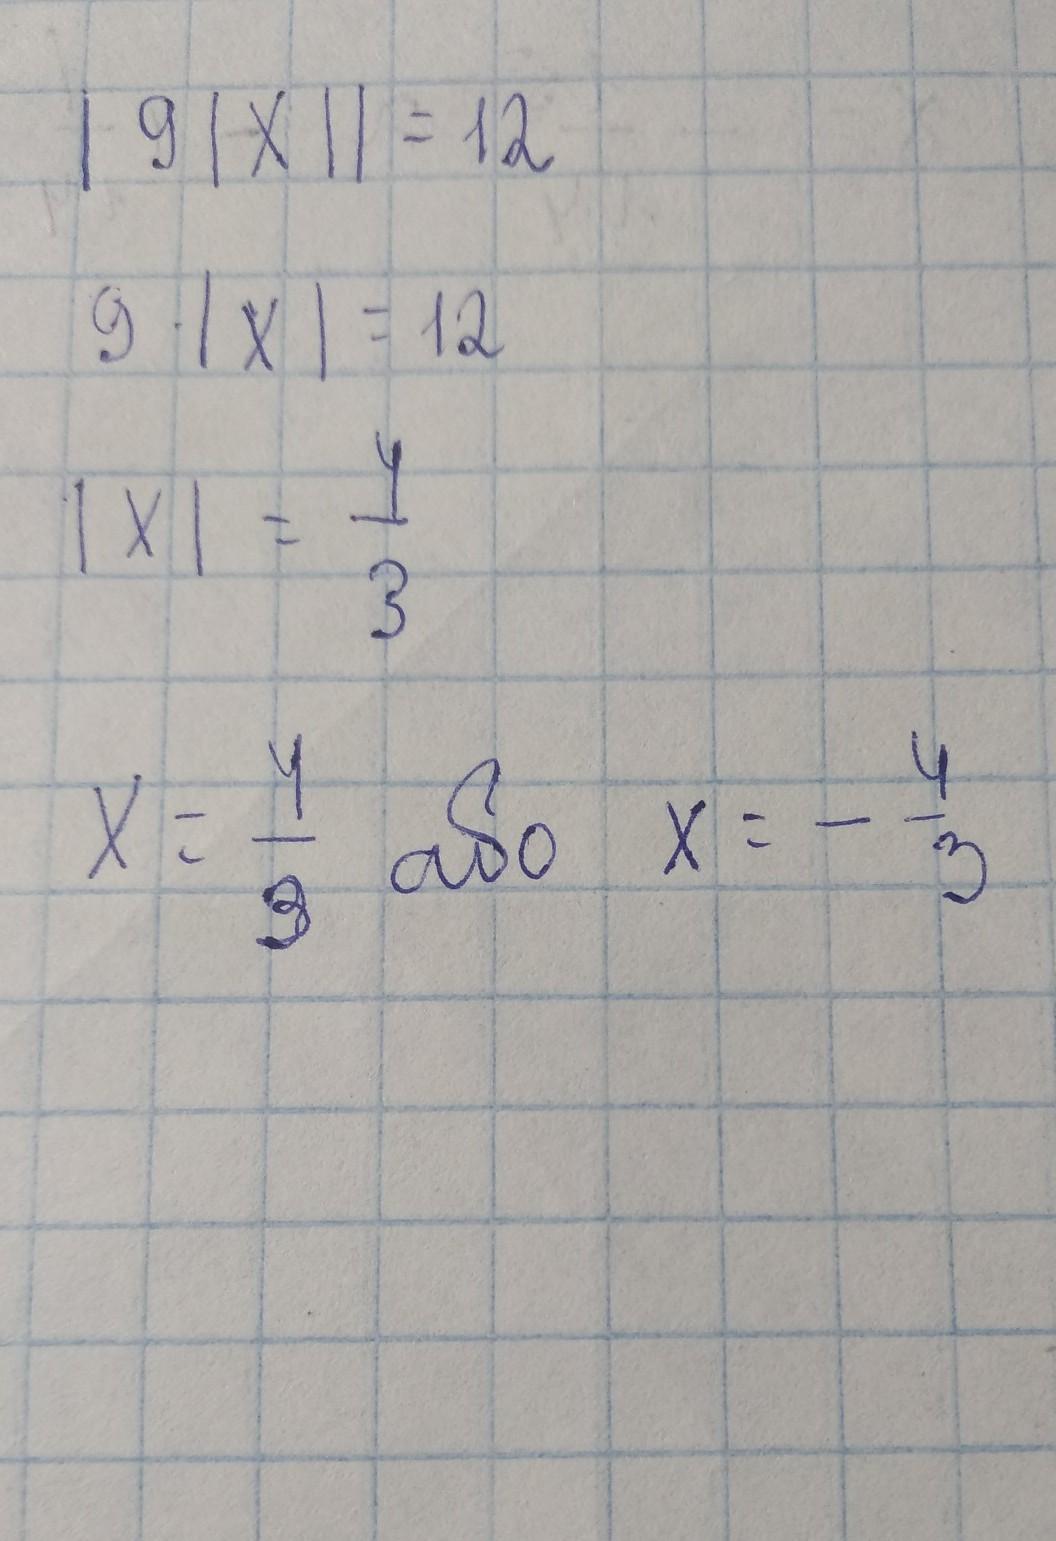 |9|x|| = 12
9 · |x| = 12
|x| = 4/3
x = 4/3 або x = - 4/3